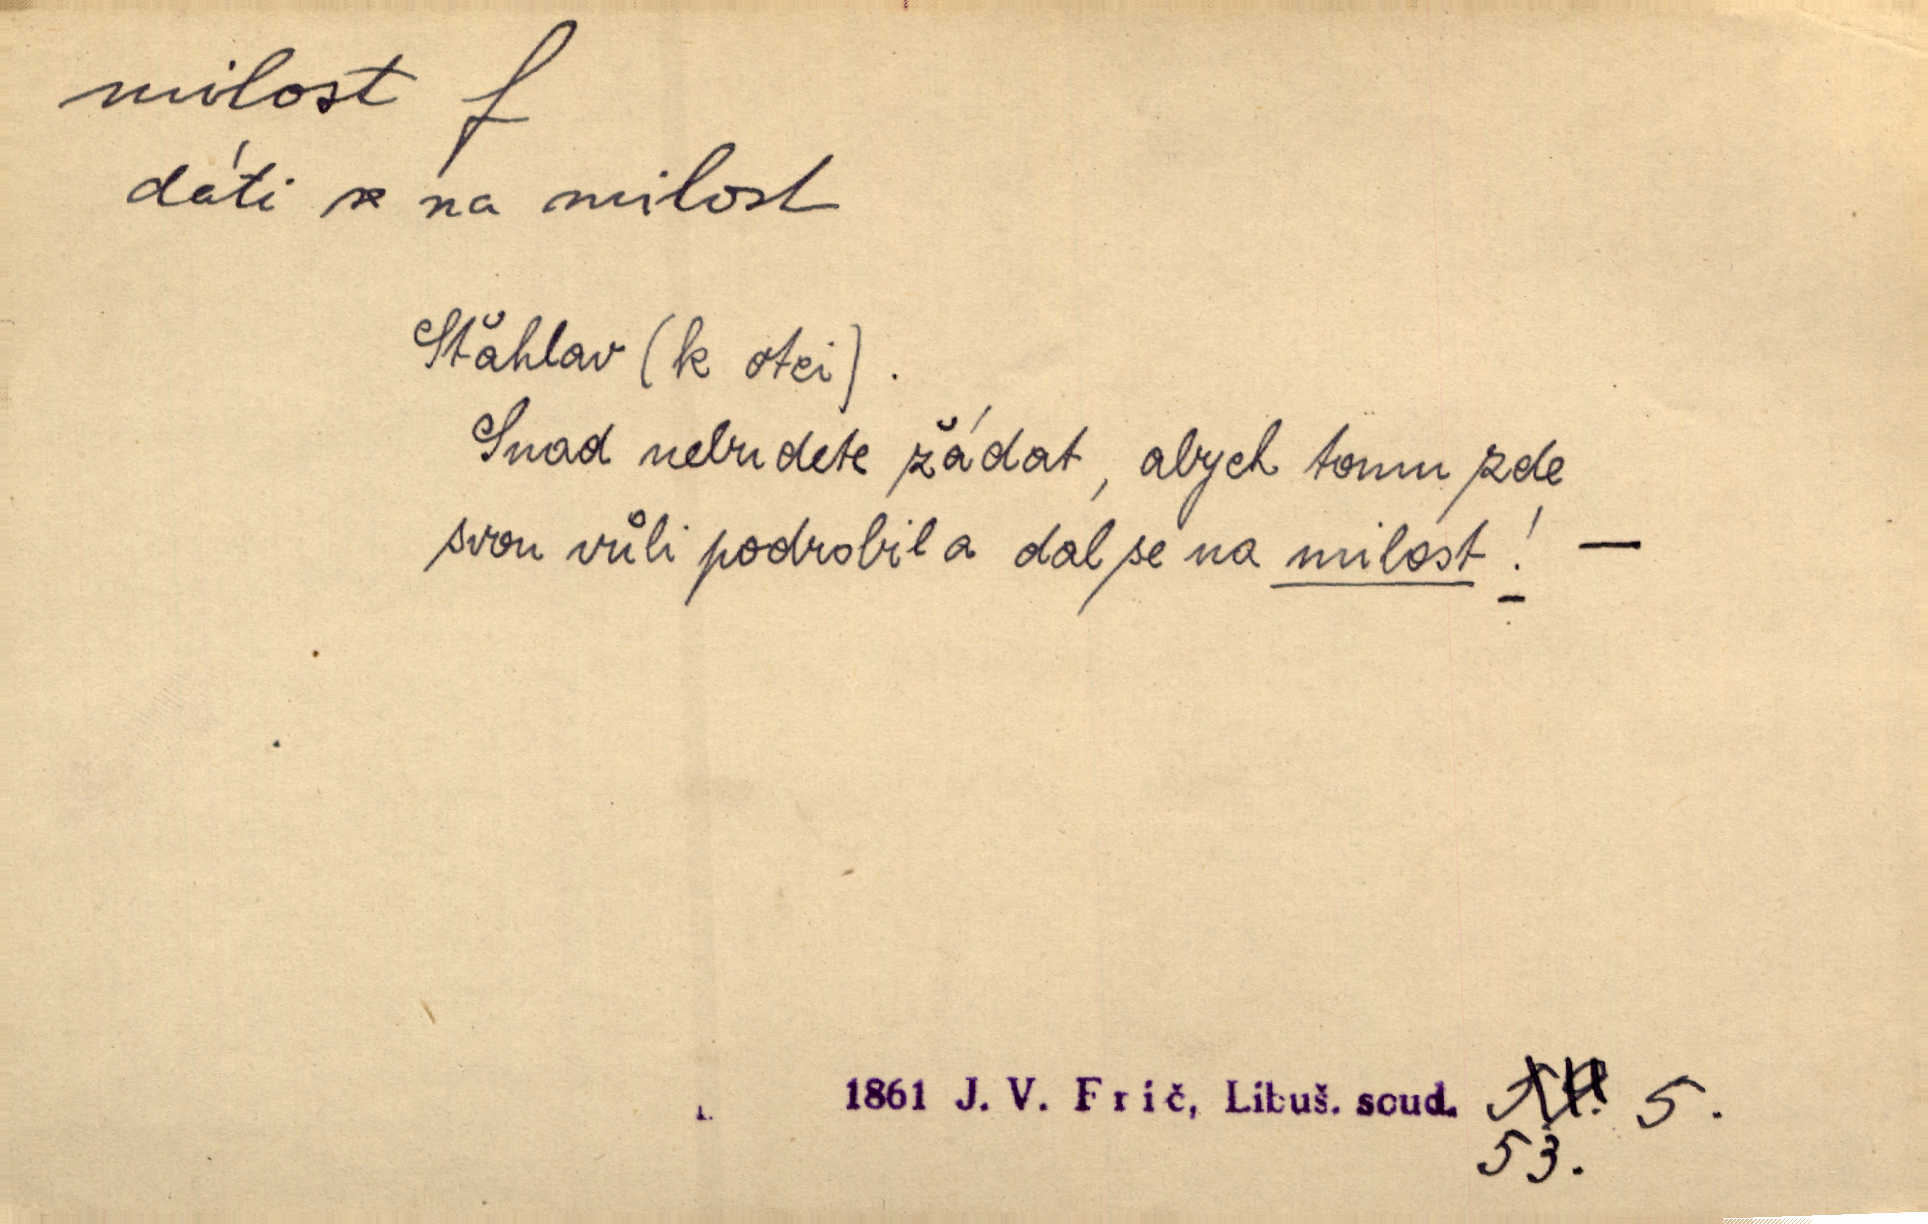 milost f
dáti se na milost
Stăhlav (k otci).
Snad nebudete žádat, abych tomu zde
svou vůli podrobil a dal se na milost! —
1861 J. V. Frič, Libuš. soud. 5.
53.